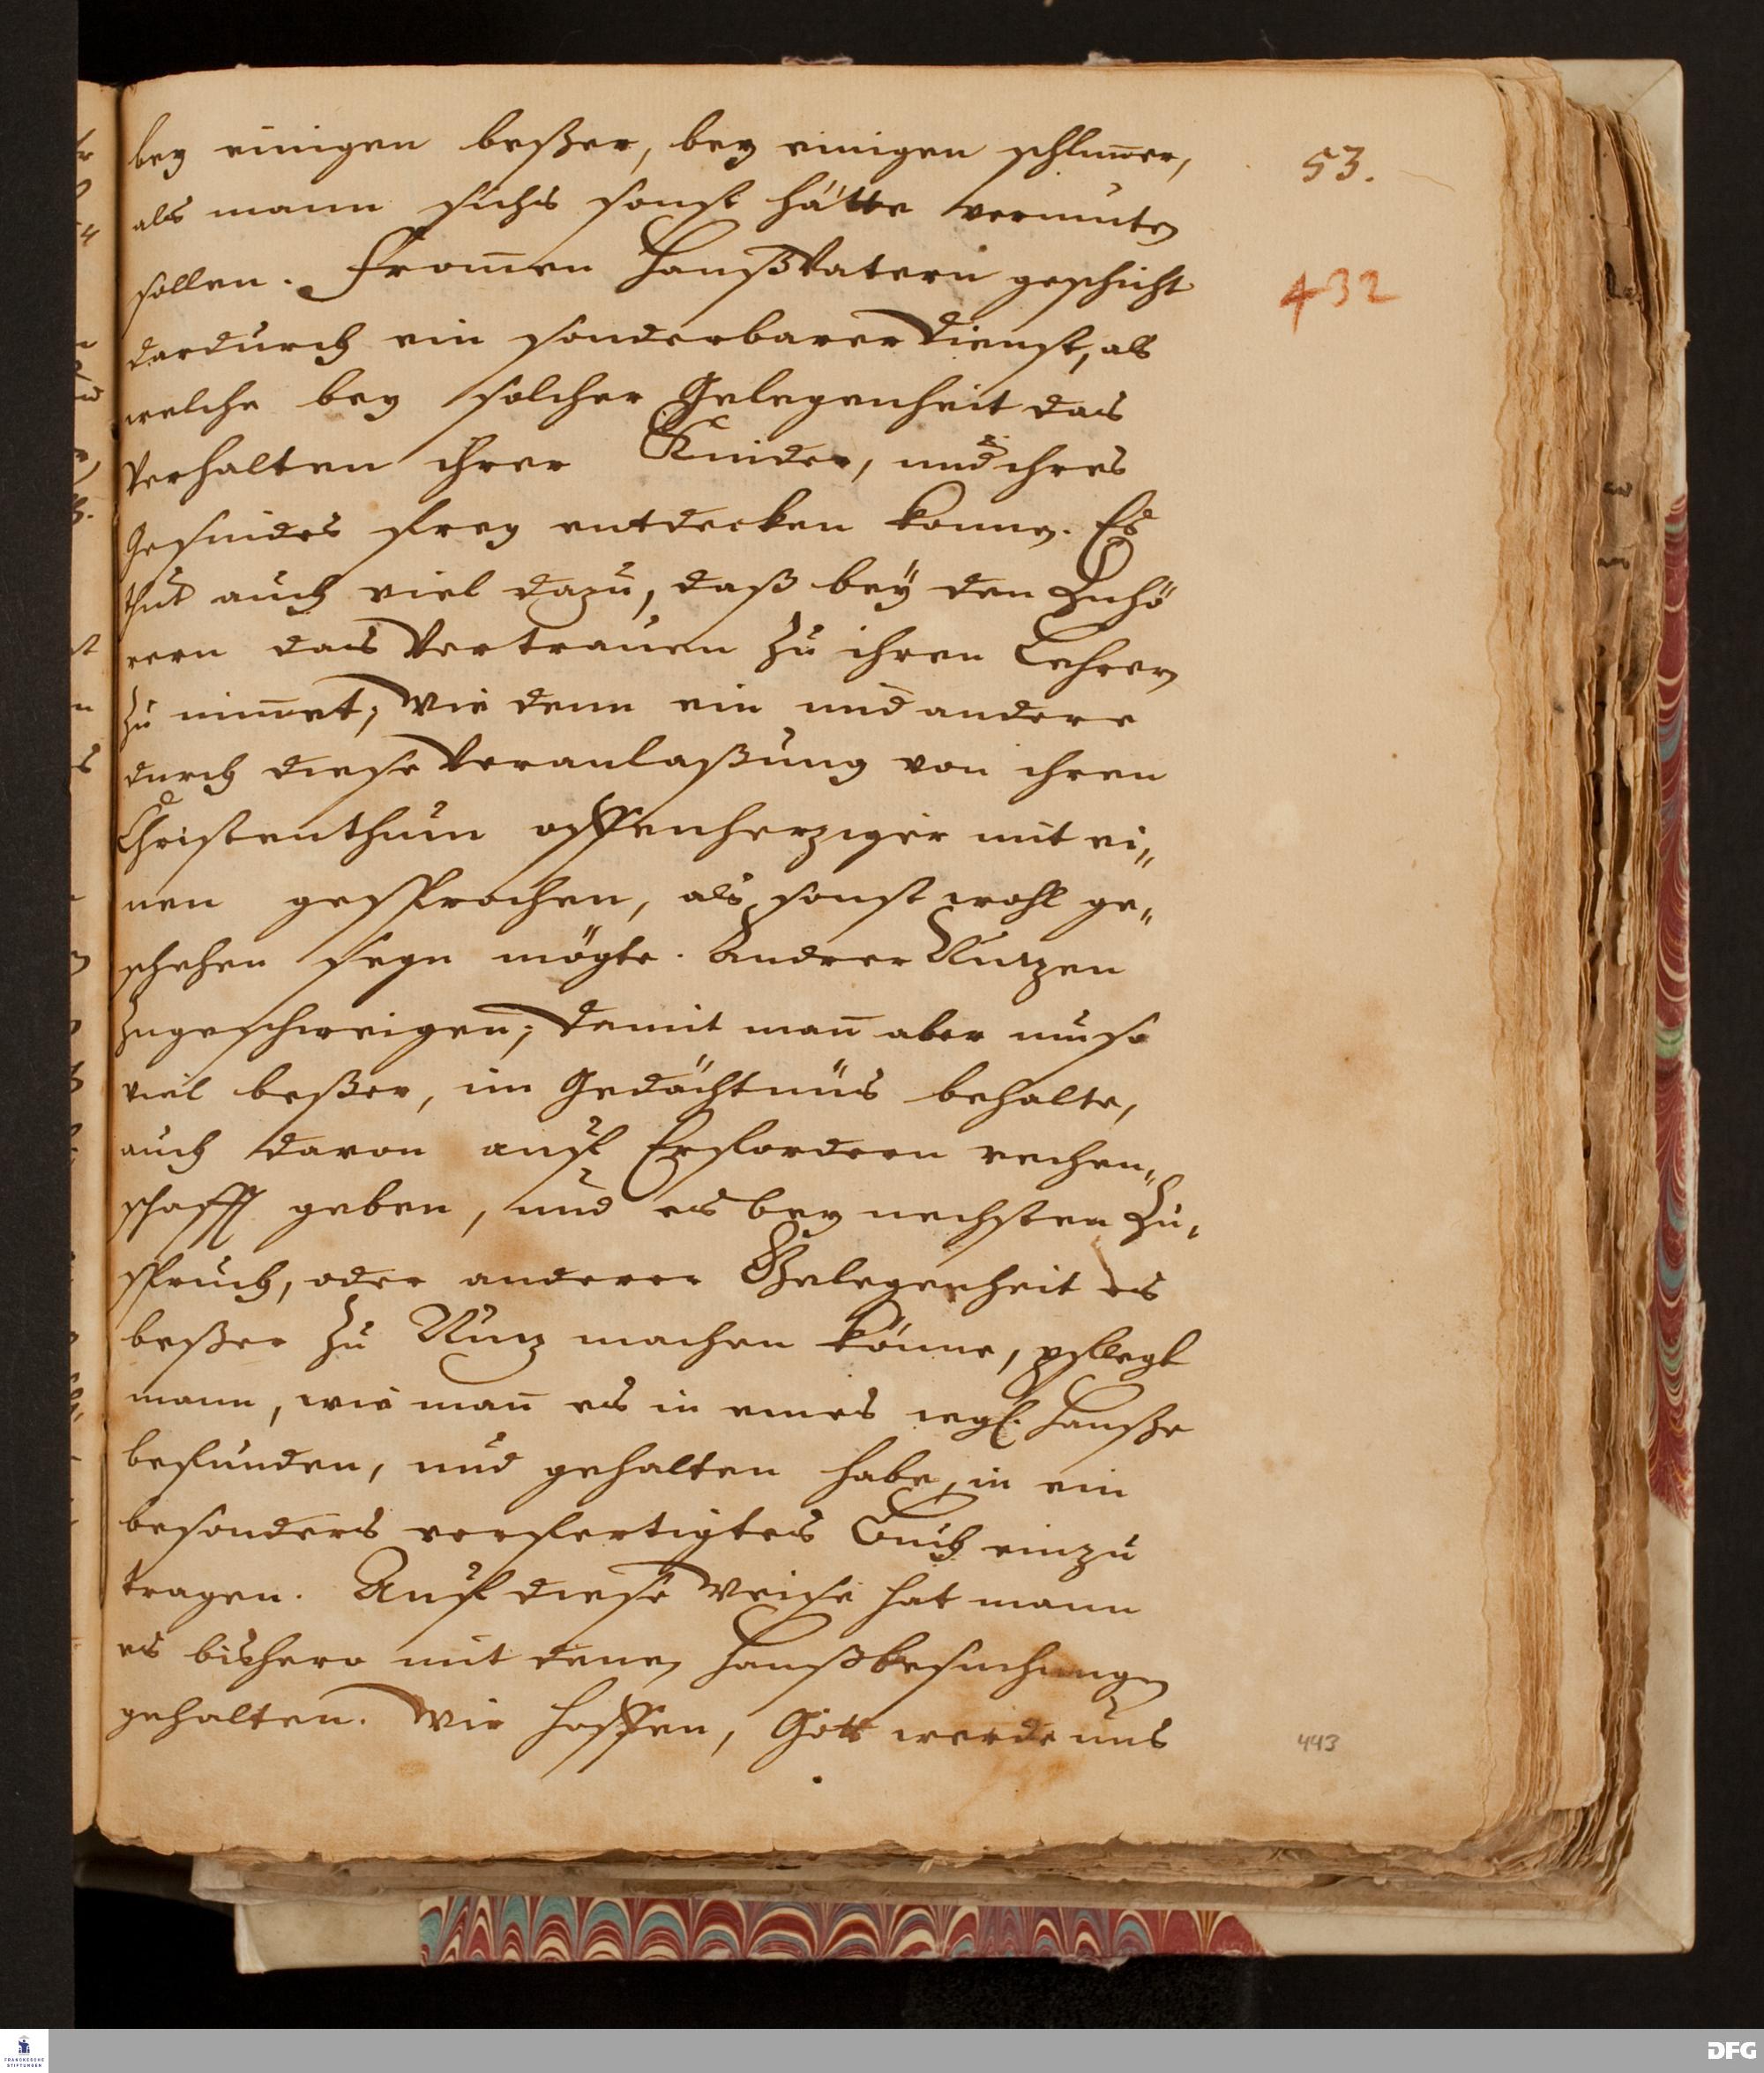 bey einigen beßer, bey einigen schlim̄er,
53.
als mann sichs sonst hätte vermuten
sollen. From̄en Hauß Vatern geschicht
432
dardurch ein sonderbarer Dienst, als
welche bey solcher Gelegenheit das
Verhalten ihrer Kinder, und ihres
Gesindes frey entdecken konnen. Es
thut auch viel dazu, daß beÿ den Zuhö
rern das Vertrauen zu ihren Lehrern
zu nim̄et; Wie denn ein und andere
durch diese Veranlaßung von ihren
Christenthum offenherziger mit ei„
nen gesprochen, als sonst wohl ge„
schehen seyn mögte. Andrer Nutzen
zugeschweigen; Damit man̄ aber umso
viel beßer, im Gedächtnüs behalte,
auch davon auf Erfordern rechen„
schafft geben, und es bey nechsten Zu„
spruch, oder anderer Gelegenheit es
beßer zu Nutz machen könne, pflegt
mann, wie man̄ es in eines Haußze
befunden, und gehalten habe, in ein
besonders verfertigtes Buch einzu
tragen. Auf diese Weise hat mann
es bishero mit denen Haußbesuchungen
gehalten. Wir hoffen, Gott werde uns
443
FRANCKESCHE
STIFTUNGEN
DFG